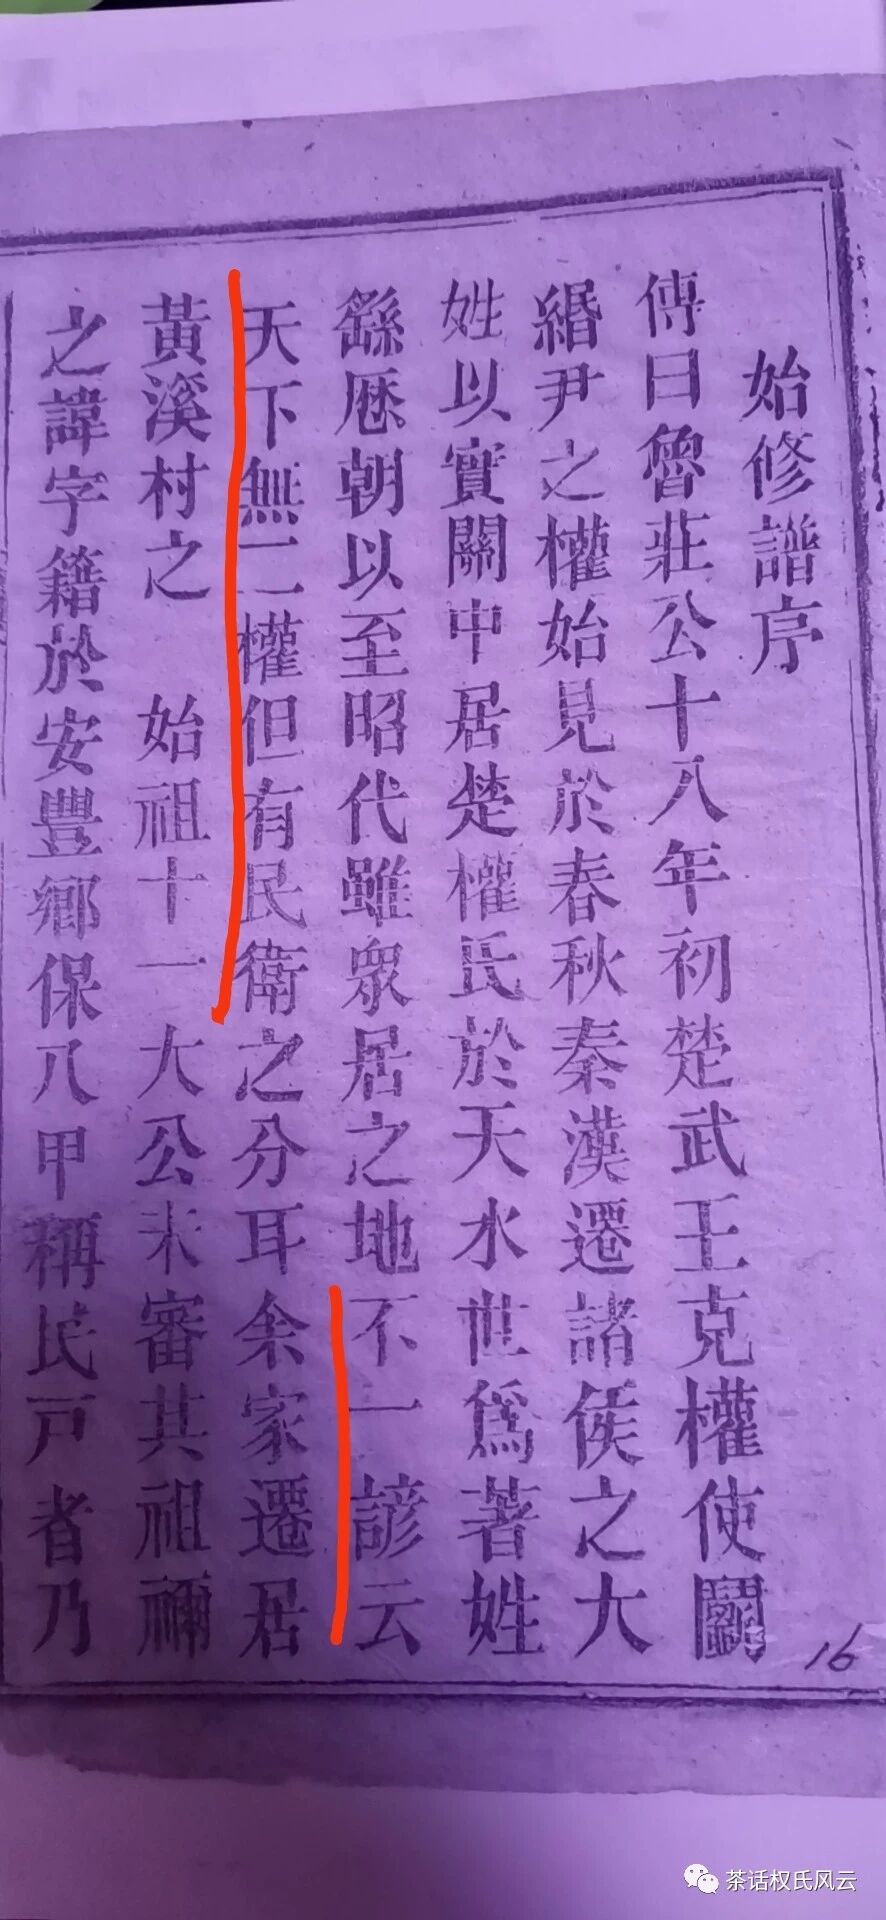 始修譜序
傳曰魯莊公十八年初楚武王克權使鬬
緡尹之權始見於春秋秦漢遷諸侯之大
姓以實關中居楚權氏於天水世爲著姓
繇歴朝以至昭代雖衆居之地不一諺云
天下無二權但有民衛之分耳余家遷居
黃溪村之 始祖十一大公未審其祖禰
之諱字籍於安豐鄉保八甲稱民戸者乃
16
茶话权氏风云